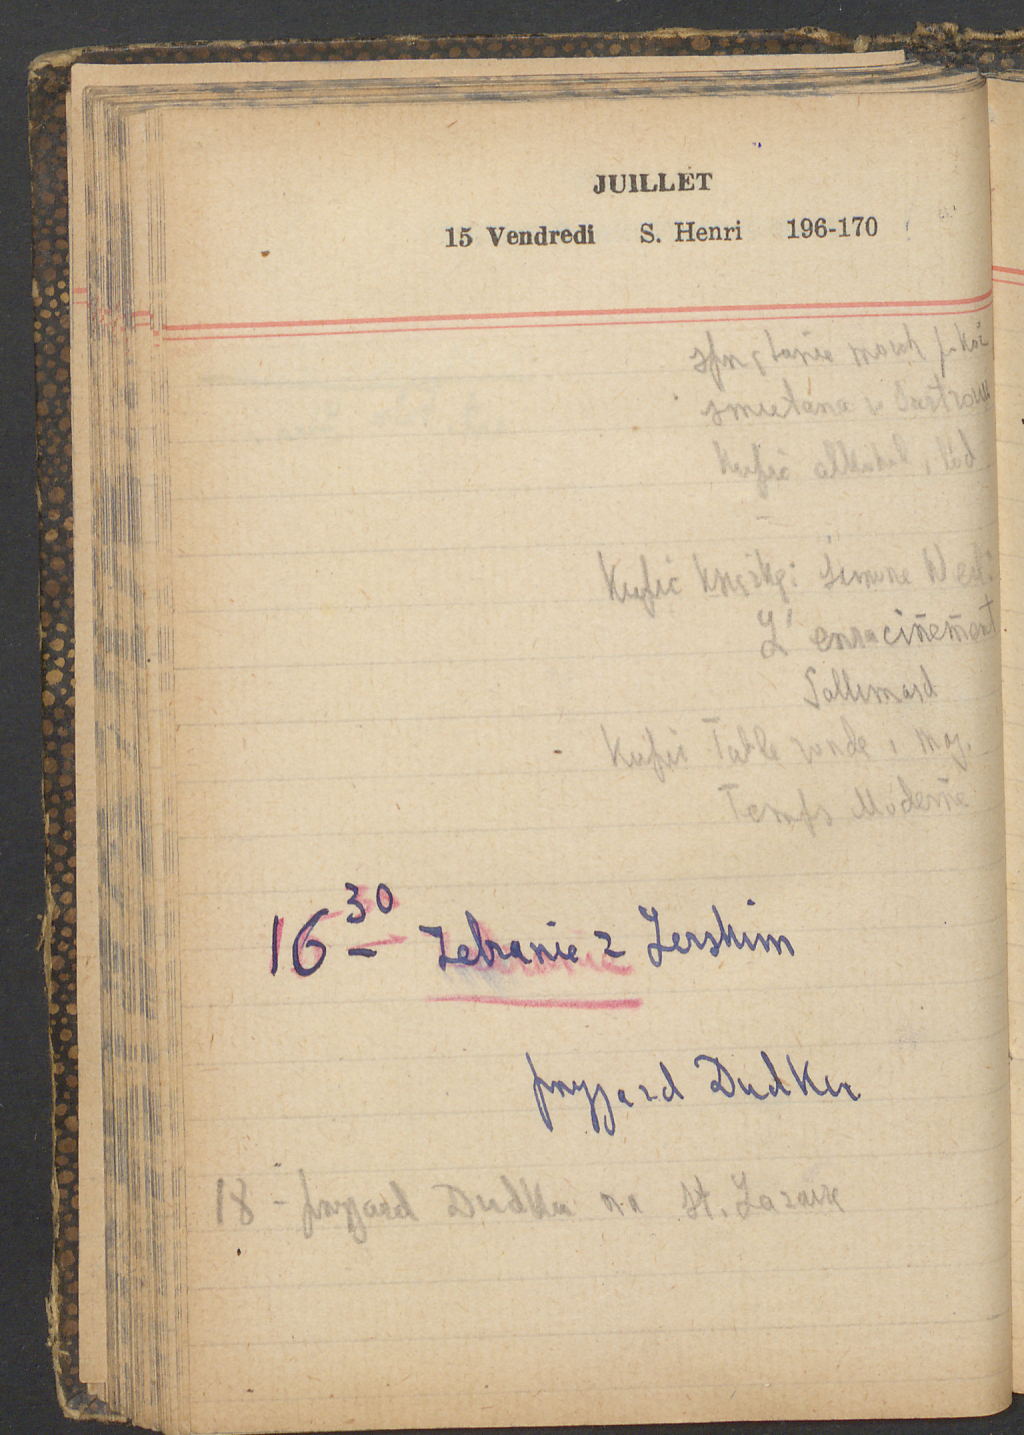 JUILLET
15 Vendredi S. Henri 196-170
smietana
Kupić alkohol, lód
Kupić książkę: Simone Weil:
L'enracinement
Gallimard
Kupić Table ronde i
Temps Moderne
16 30 Zebranie z Jerskim
przyjazd Dudka
18 - przyjazd Dudka na St. Lazare